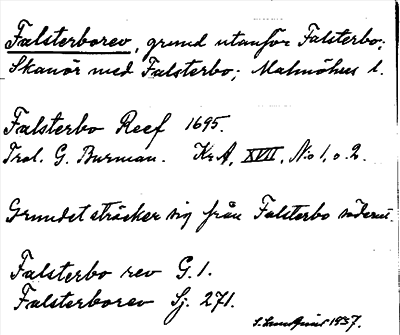 Falsterborev, grund utanför Falsterbo;
Skanör med Falsterbo; Malmöhus l.
Falsterbo Reef 1695.
Trol. G. Burman. Kr A, XVII, No 1, o. 2.
Grundet sträcker sig från Falsterbo söderut.
Falsterbo rev G. 1.
Falsterborev Sj. 271.
S. 1937.